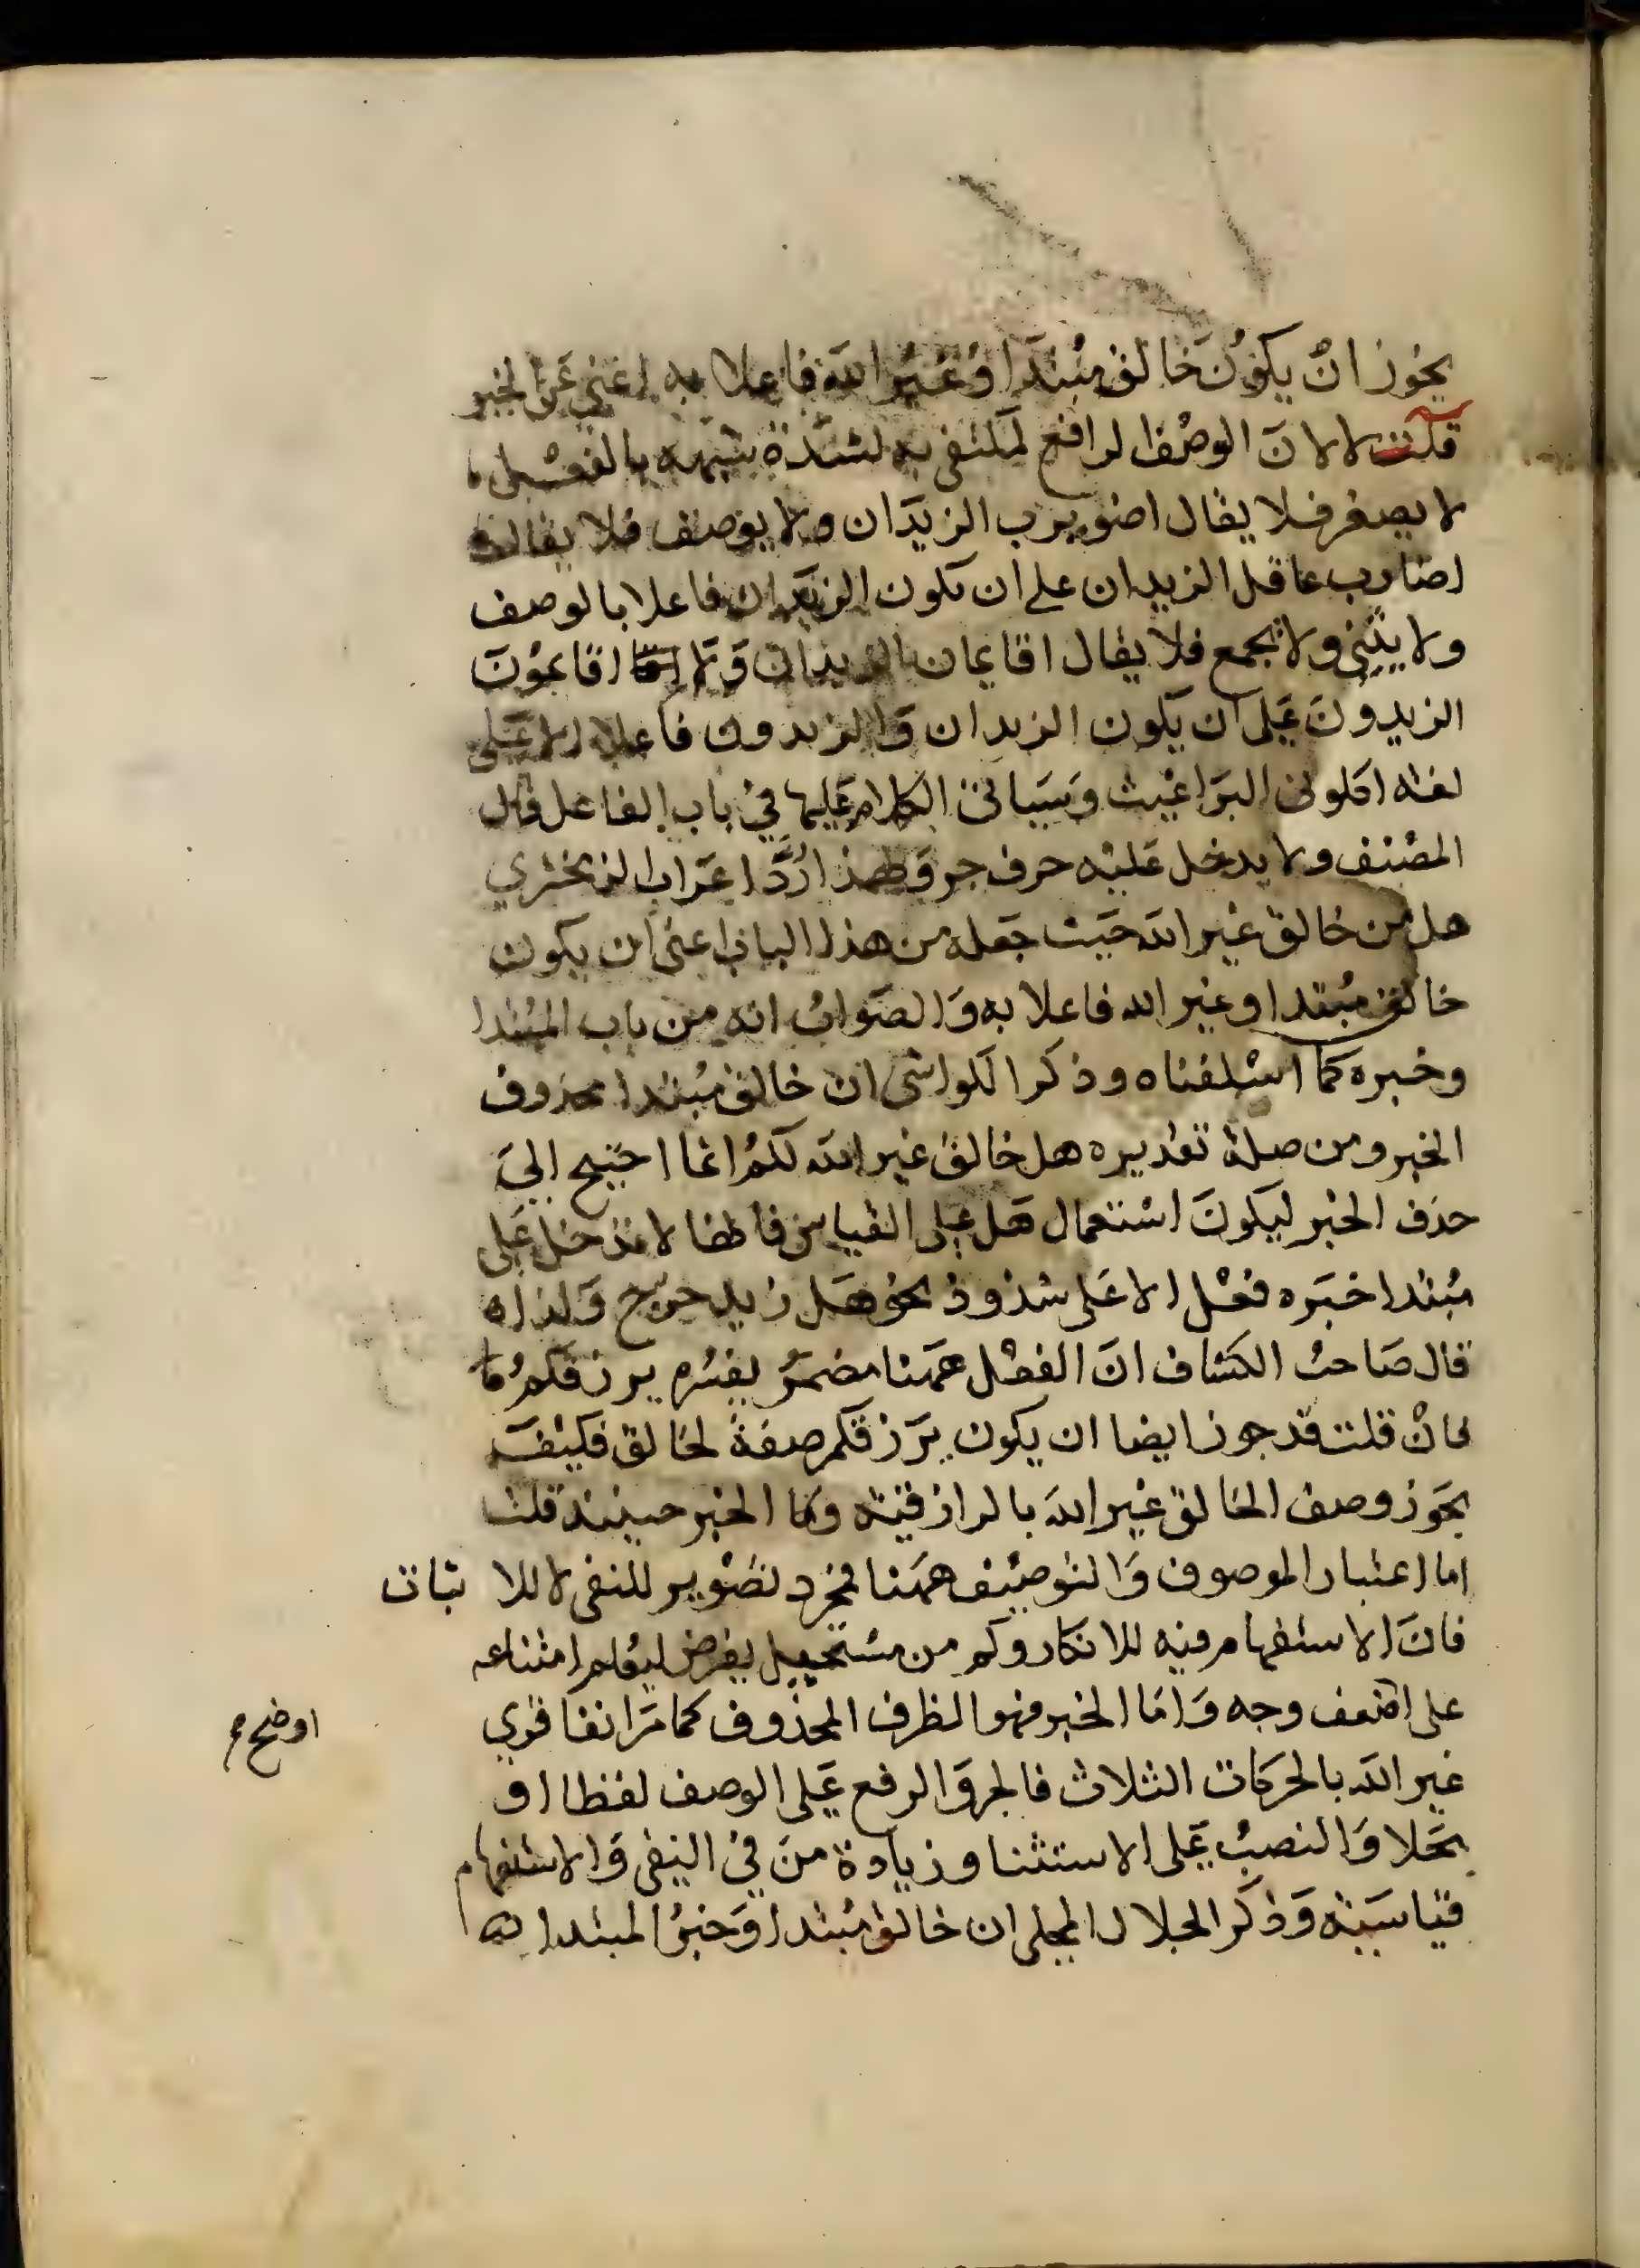 يجُوز انْ يكوُنَ خالق مبُتدَا وَغيْرُ اللهَ فاعلا به اغني عَن الخبر
قلت لا لانَ الوصْف الرافع لمكتفى به لشدَة شبهه بالفعْل
لا يصغر فلا يقال اضويرب الزيدَان ولا يوصف فلا يقال
اضارب عاقل الزيدان على ان يكون الزيدَان فاعلا بالوصف
ولا يثنى ولا يجمع فلا يقال اقايمان الزيدان وَلا اقايموُنَ
الزيدوُنَ عَلى ان يكون الزيدان وَالزيدون فاعلا الا عَلى
لغة اكلونى البرَاغيْث وَسَياتى الكلام عَليها فيْ باب الفاعل قال
المصْنف ولا يدخل عَليْه حرف جر وَلهذا رُدَّ اعرَاب الزمخشري
هل من خالق غيْر اللهَ حَيث جَعله من هذا الباب اعنى ان يكون
خالق مبُتدا وغير الله فاعلا به وَالصَوابُ انه من باب المبُتدا
وخبره كمَا اسْلفناه وذكر الكواشى ان خالق مبُتدا محذوف
الخبر ومن صلة تقديره هل خالق غير اللهَ لكمُ انما احتيج الىَ
حذف الخبْر ليَكونَ اسْتعمال هَل عَلى القياس فانها لا تدْخل عَلى
مبُتدا خبَره فعْل الا عَلى شذوذ نحو هَل زيد خرج وَلذا
قال صَاحبُ الكشاف انَ الفعْل هَهنا مضمرُ يفسّره يرزقكمُ
فانْ قلت قد جوز ايضا ان يكون يرَزقكم صفةً لخالق فكيْفَ
يجَوز وصف الخالق غير اللهَ بالرازقية وما الخبر حينئذ قلت
اما اعتبار الموصوف وَالتوصيْف ههَنا فمجرد تصْوير للنفى لا للاثبات
فانَ الاستفهام فيه للانكار وكم من مسْتحيل يفرض ليعُلم امتناعه
على اضعف وجه وَامَا الخبر فهو الظرف المحذوف كما مرَ انفا قري
اوضح
غير اللهَ بالحركات الثلاث فالجر وَالرفع عَلى الوصف لفظا او
محَلا وَالنصبُ عَلى الاستثنا وزيادة منَ فيْ النفى وَالاستفهام
قياسيَة وَذكر الجلال المحلى ان خالق مبُتدا وَخبرُ المبتدا